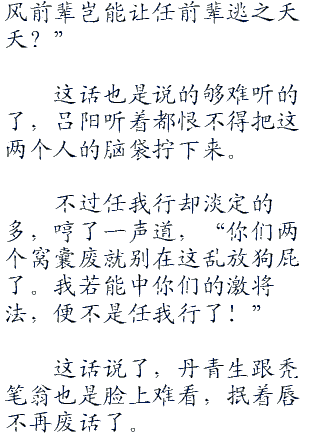 风前辈岂能让任前辈逃之夭
夭？”
这话也是说的够难听的
了，吕阳听着都恨不得把这
两个人的脑袋拧下来。
不过任我行却淡定的
多，哼了一声道，“你们两
个窝囊废就别在这乱放狗屁
了。我若能中你们的激将
法，便不是任我行了！”
这话说了，丹青生跟秃
笔翁也是脸上难看，抿着唇
不再废话了。